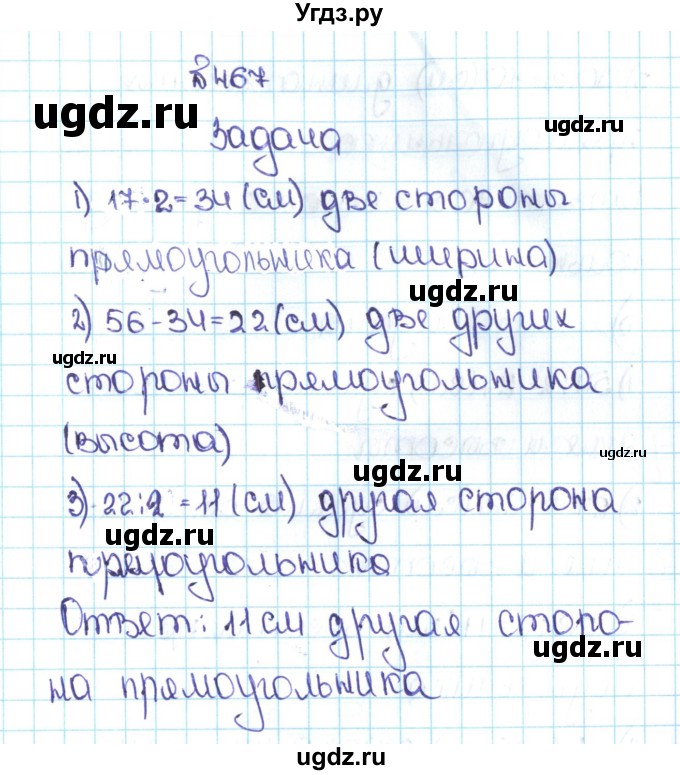 Угдз.ру
№467
ugdz.ru
ugdz.ru
Задача
1) 17·2=34 (см) две стороны
прямоугольника (ширина)
ugdz.ru
2) 56-34=22 (см) две других
ugdz.ru
стороны прямоугольника
(высота)
ugdz.ru
ugdz.ru
3) 22:2=11 (см) другая сторона
ugdz.ru
прямоугольника
Ответ: 11 см другая сторо-
ugdz.ru
на прямоугольника
ugdz.ru
ugdz.ru